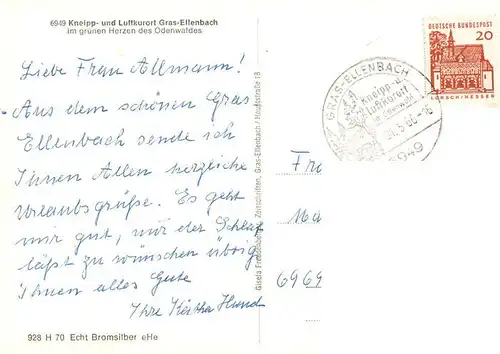 6949 Kneipp- und Luftkurort Gras-Ellenbach
im grünen Herzen des Odenwaldes
Liebe Frau Allmann!
Aus dem schönen Gras
Ellenbach sende ich
Ihnen Allen herzliche
Urlaubsgrüße. Es geht
mir gut, nur der Schlaf
läßt zu wünschen übrig
Ihnen alles Gute
Ihre Käthe Hund
928 H 70 Echt Bromsilber eHe
Gisela Zeitschriften, Gras-Ellenbach / Hauptstraße 18
GRAS-ELLENBACH
Kneipp-u.
Luftkurort
i. Odenwald
6949
DEUTSCHE BUNDESPOST
20
LORSCH/HESSEN
Fr
Ma
6969